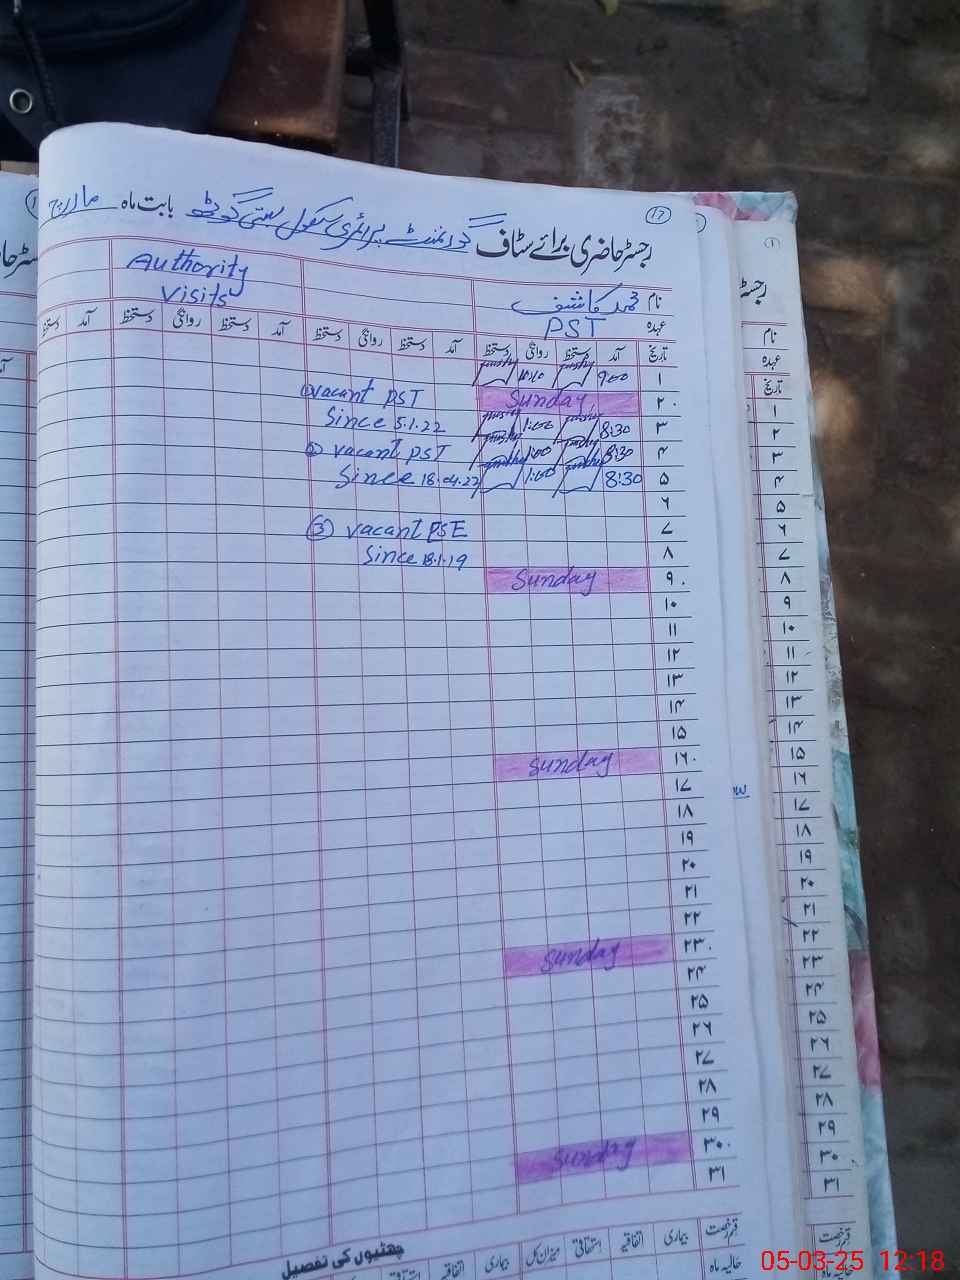 17
رجسٹر حاضری برائے سٹاف گورنمنٹ پرائمری سکول بستی گوٹھ بابت ماہ مارچ
نام محمد کاشف
Authority
Visits
عہدہ PST
تاریخ آمد دستخط روانگی دستخط آمد دستخط روانگی دستخط آمد دستخط روانگی دستخط آمد دستخط
۱ 9:00 10:10
۲ Sunday ① vacant PST
۳ 8:30 1:00 Since 5.1.22
۴ 8:30 1:00 ② vacant PST
۵ 8:30 1:00 Since 18.04.22
۶
۷ ③ vacant PSE
۸ Since 18.1.19
۹ Sunday
۱۰
۱۱
۱۲
۱۳
۱۴
۱۵
۱۶ Sunday
۱۷
۱۸
۱۹
۲۰
۲۱
۲۲
۲۳ Sunday
۲۴
۲۵
۲۶
۲۷
۲۸
۲۹
۳۰ Sunday
۳۱
چھٹیوں کی تفصیل
قسم رخصت بیماری اتفاقیہ استحقاقی میزان کل بیماری اتفاقیہ
حالیہ ماہ
رجسٹر
نام
عہدہ
تاریخ
۱
۲
۳
۴
۵
۶
۷
۸
۹
۱۰
۱۱
۱۲
۱۳
۱۴
۱۵
۱۶
۱۷
۱۸
۱۹
۲۰
۲۱
۲۲
۲۳
۲۴
۲۵
۲۶
۲۷
۲۸
۲۹
۳۰
۳۱
قسم رخصت
حالیہ ماہ
05-03-25 12:18